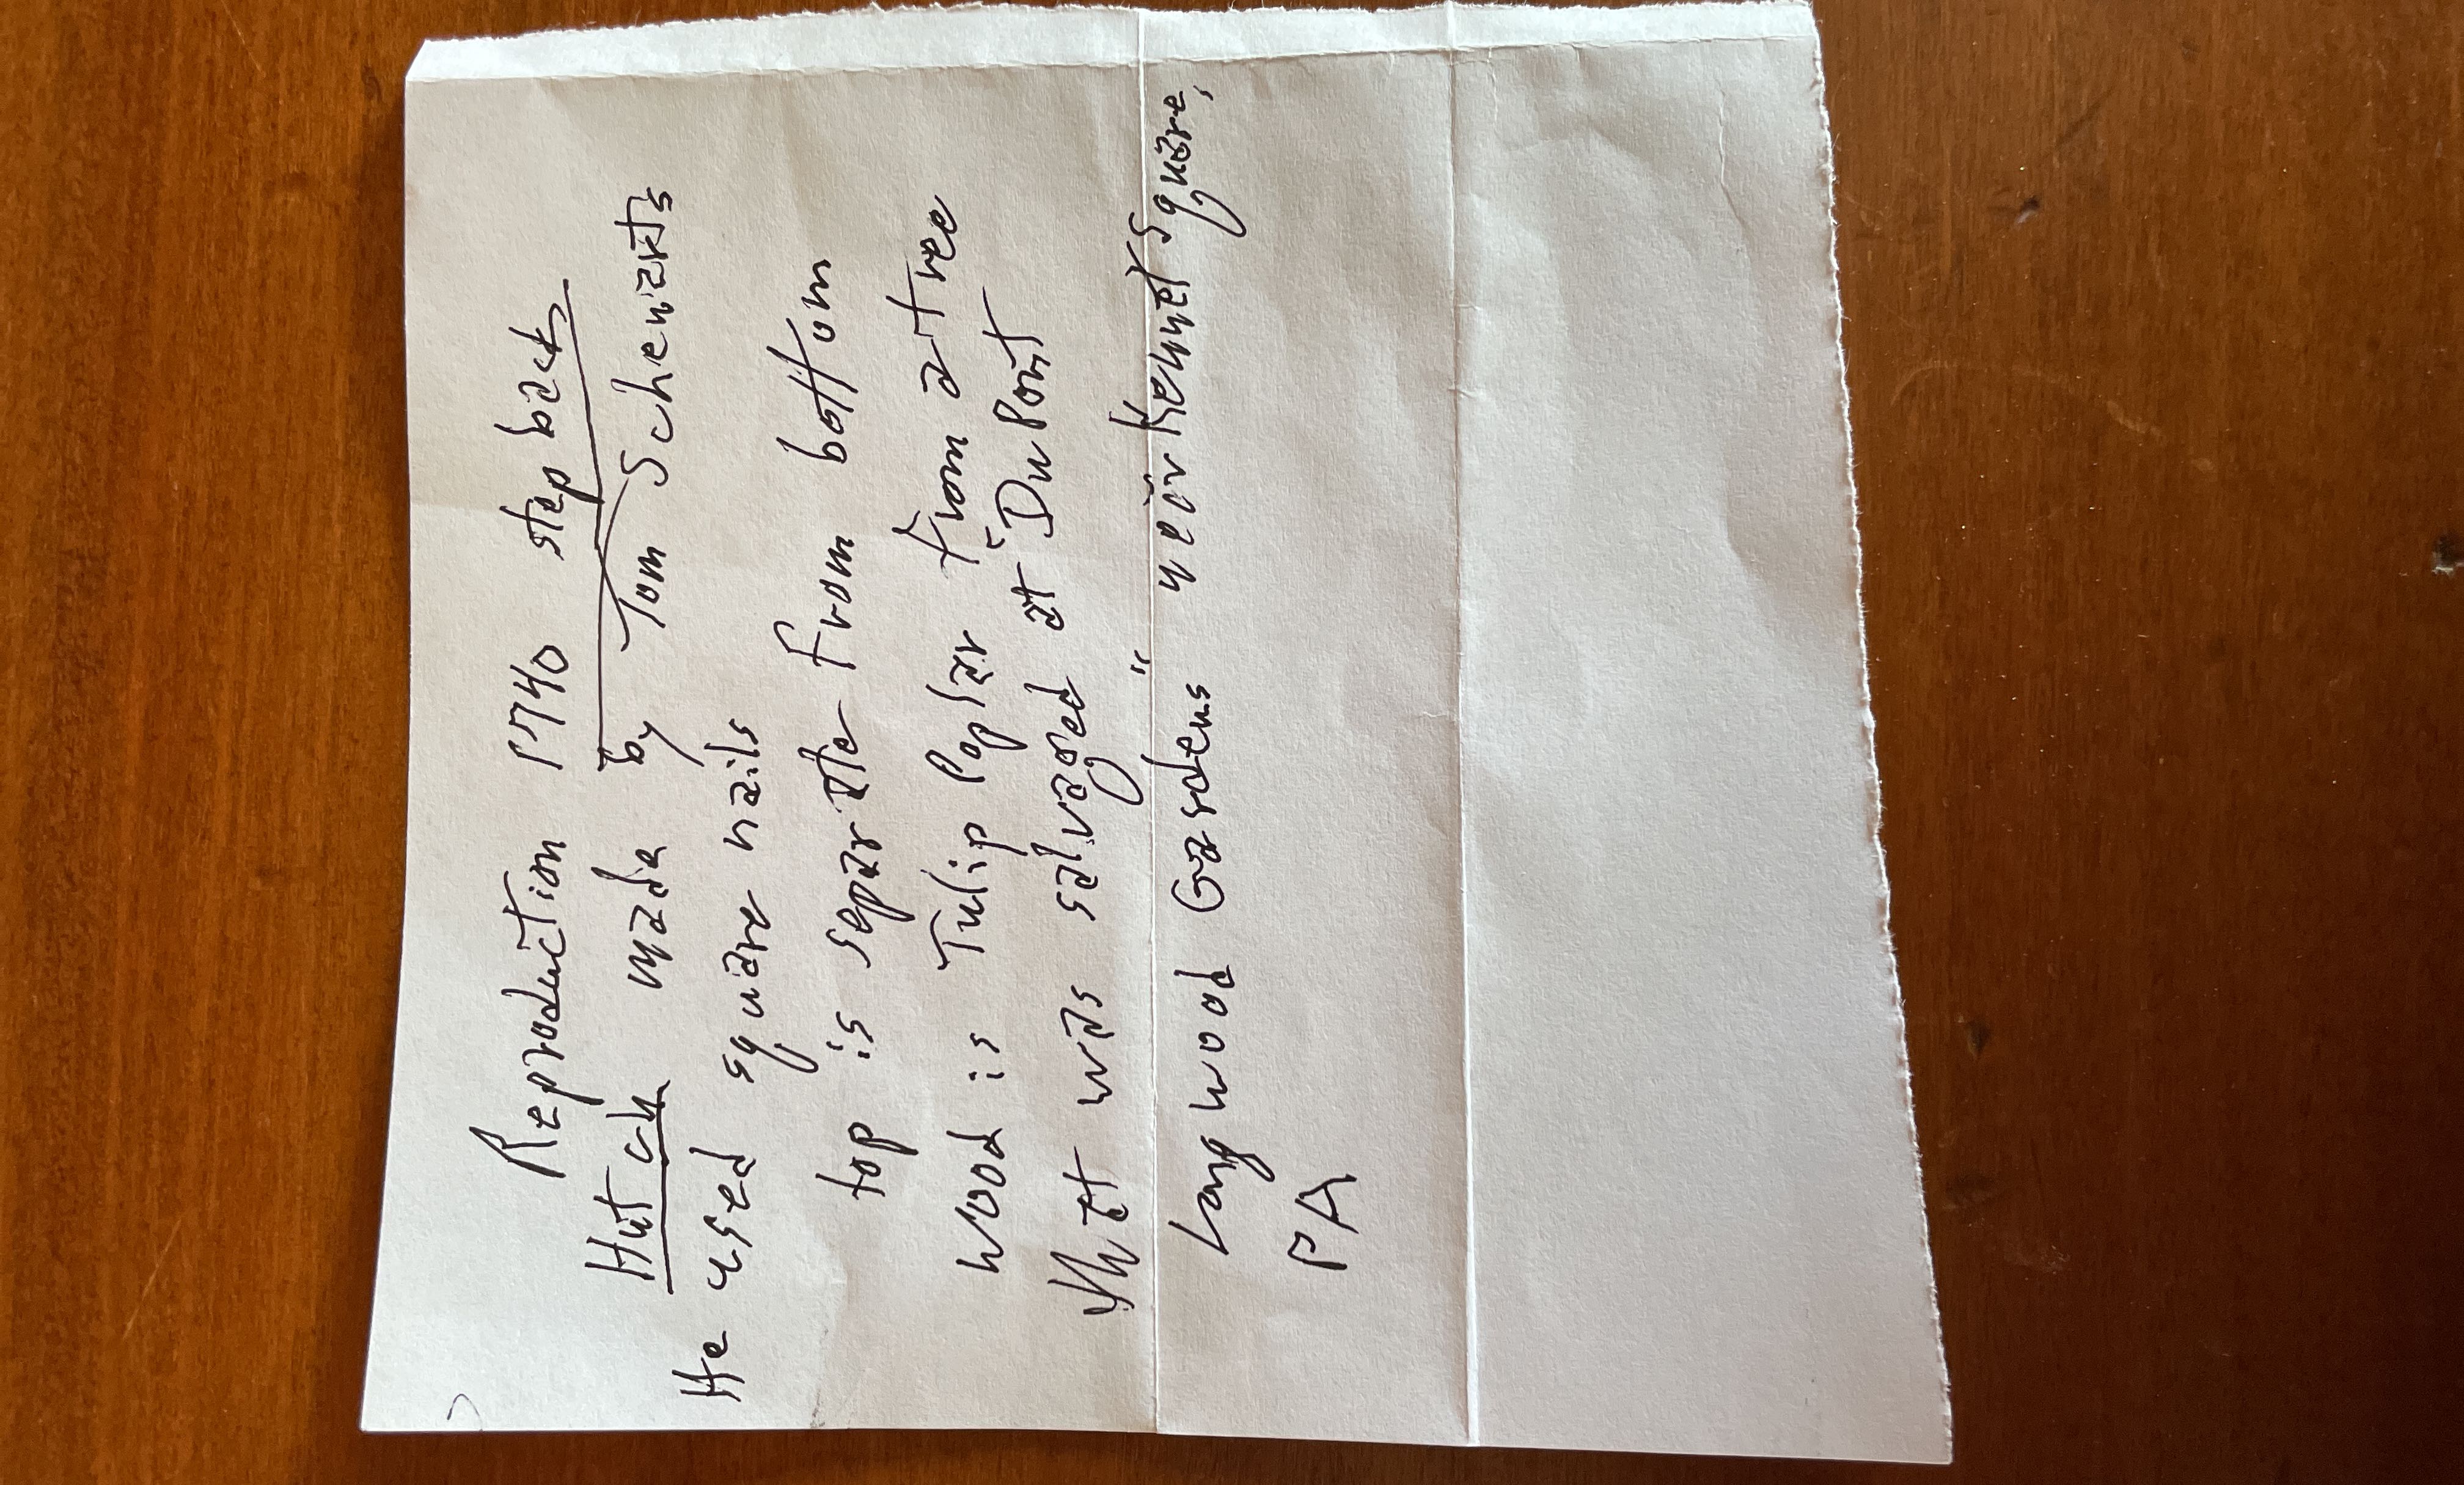 Reproduction 1740 step back
Hutch made by Tom Schewarts
He used square nails
top is separate from bottom
wood is Tulip Poplar from a tree
that was salvaged at "DuPont
Longwood Gardens" near Kennet Square,
PA